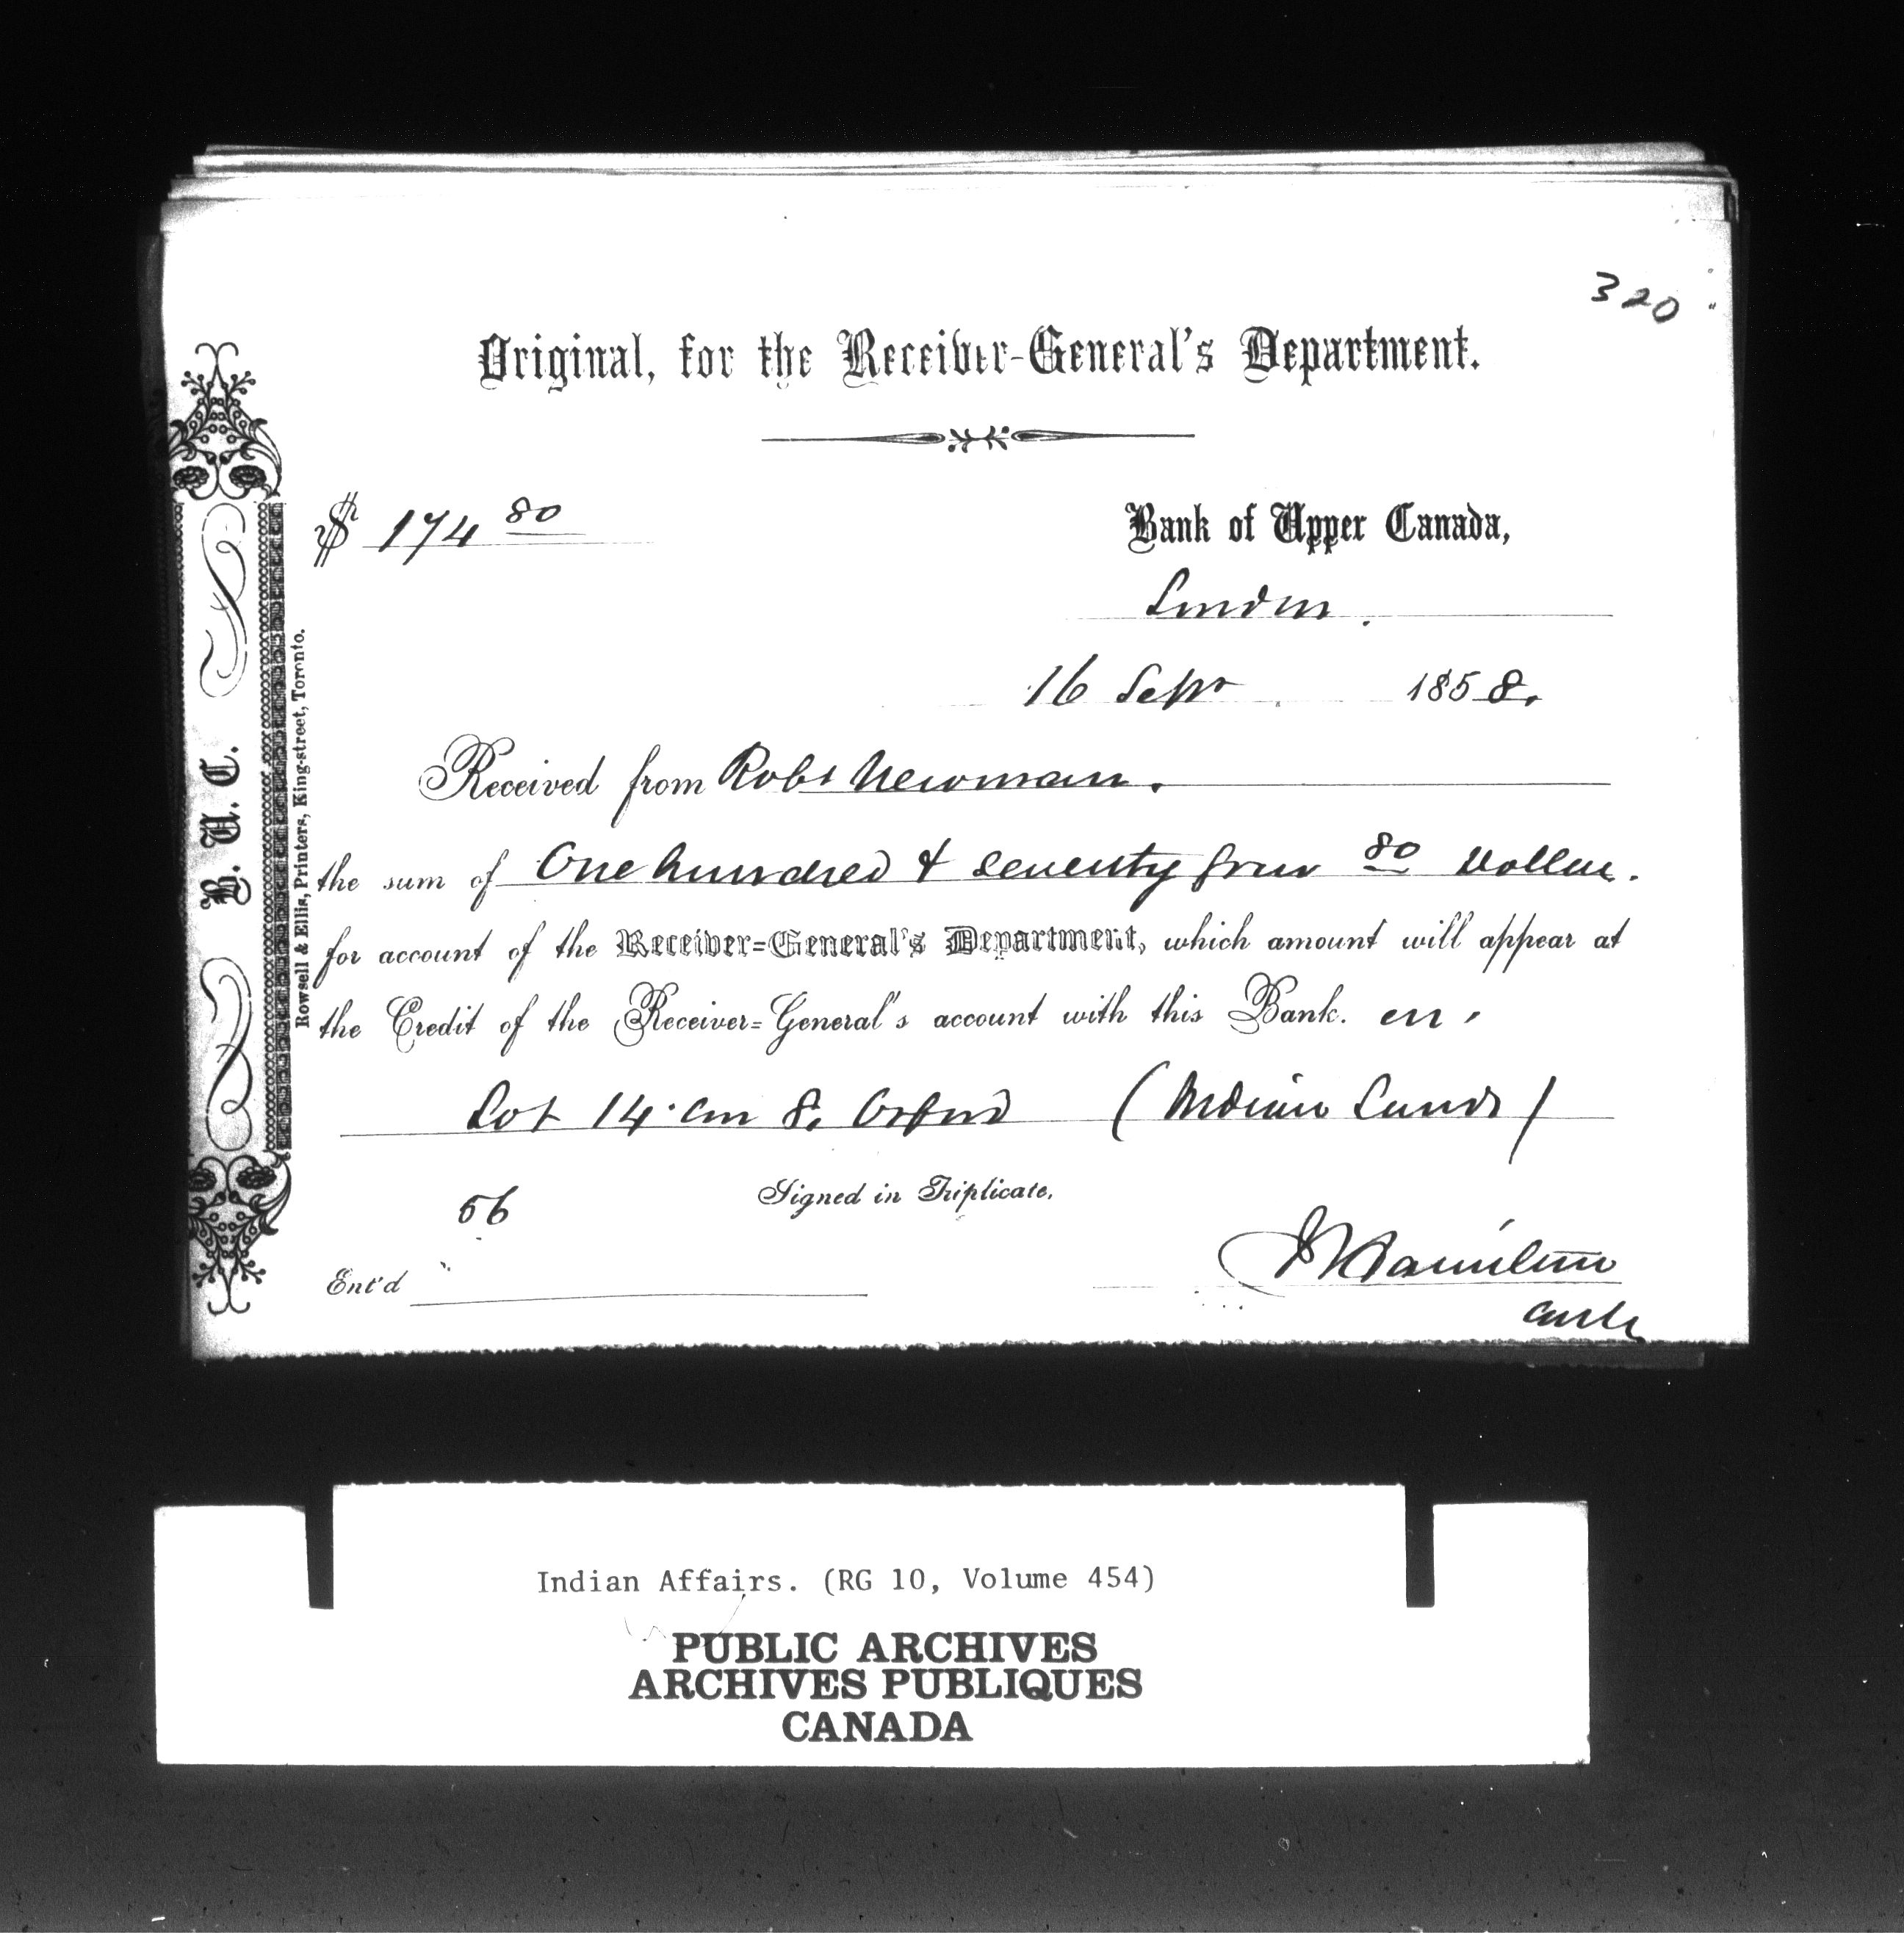 320
Original, for the Receiver-General's Department.
$ 174 80
Bank of Upper Canada,
London.
16 Sept 1858.
Received from Robt Newman.
the sum of One hundred & seventy four 80 Dollars.
for account of the Receiver=General's Department, which amount will appear at
the Credit of the Receiver=General's account with this Bank. on
Lot 14. Con 8. Orford (Indian Lands)
56
Signed in Triplicate,
Ent'd
Hamilton
B. U. C.
Rowsell & Ellis, Printers, King-street, Toronto.
Indian Affairs. (RG 10, Volume 454)
PUBLIC ARCHIVES
ARCHIVES PUBLIQUES
CANADA